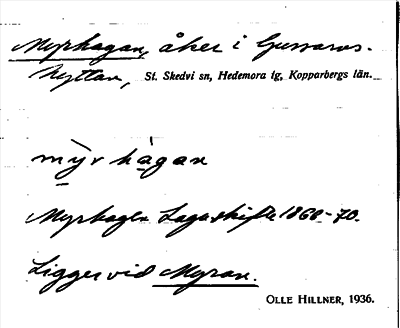 Myrhagan, åker i Gussarvs-
hyttan, St. Skedvi sn, Hedemora tg, Kopparbergs län.
mỳr hàgan
Myrhagen Lagaskifte 1868-70.
Ligger vid Myran.
OLLE HILLNER, 1936.